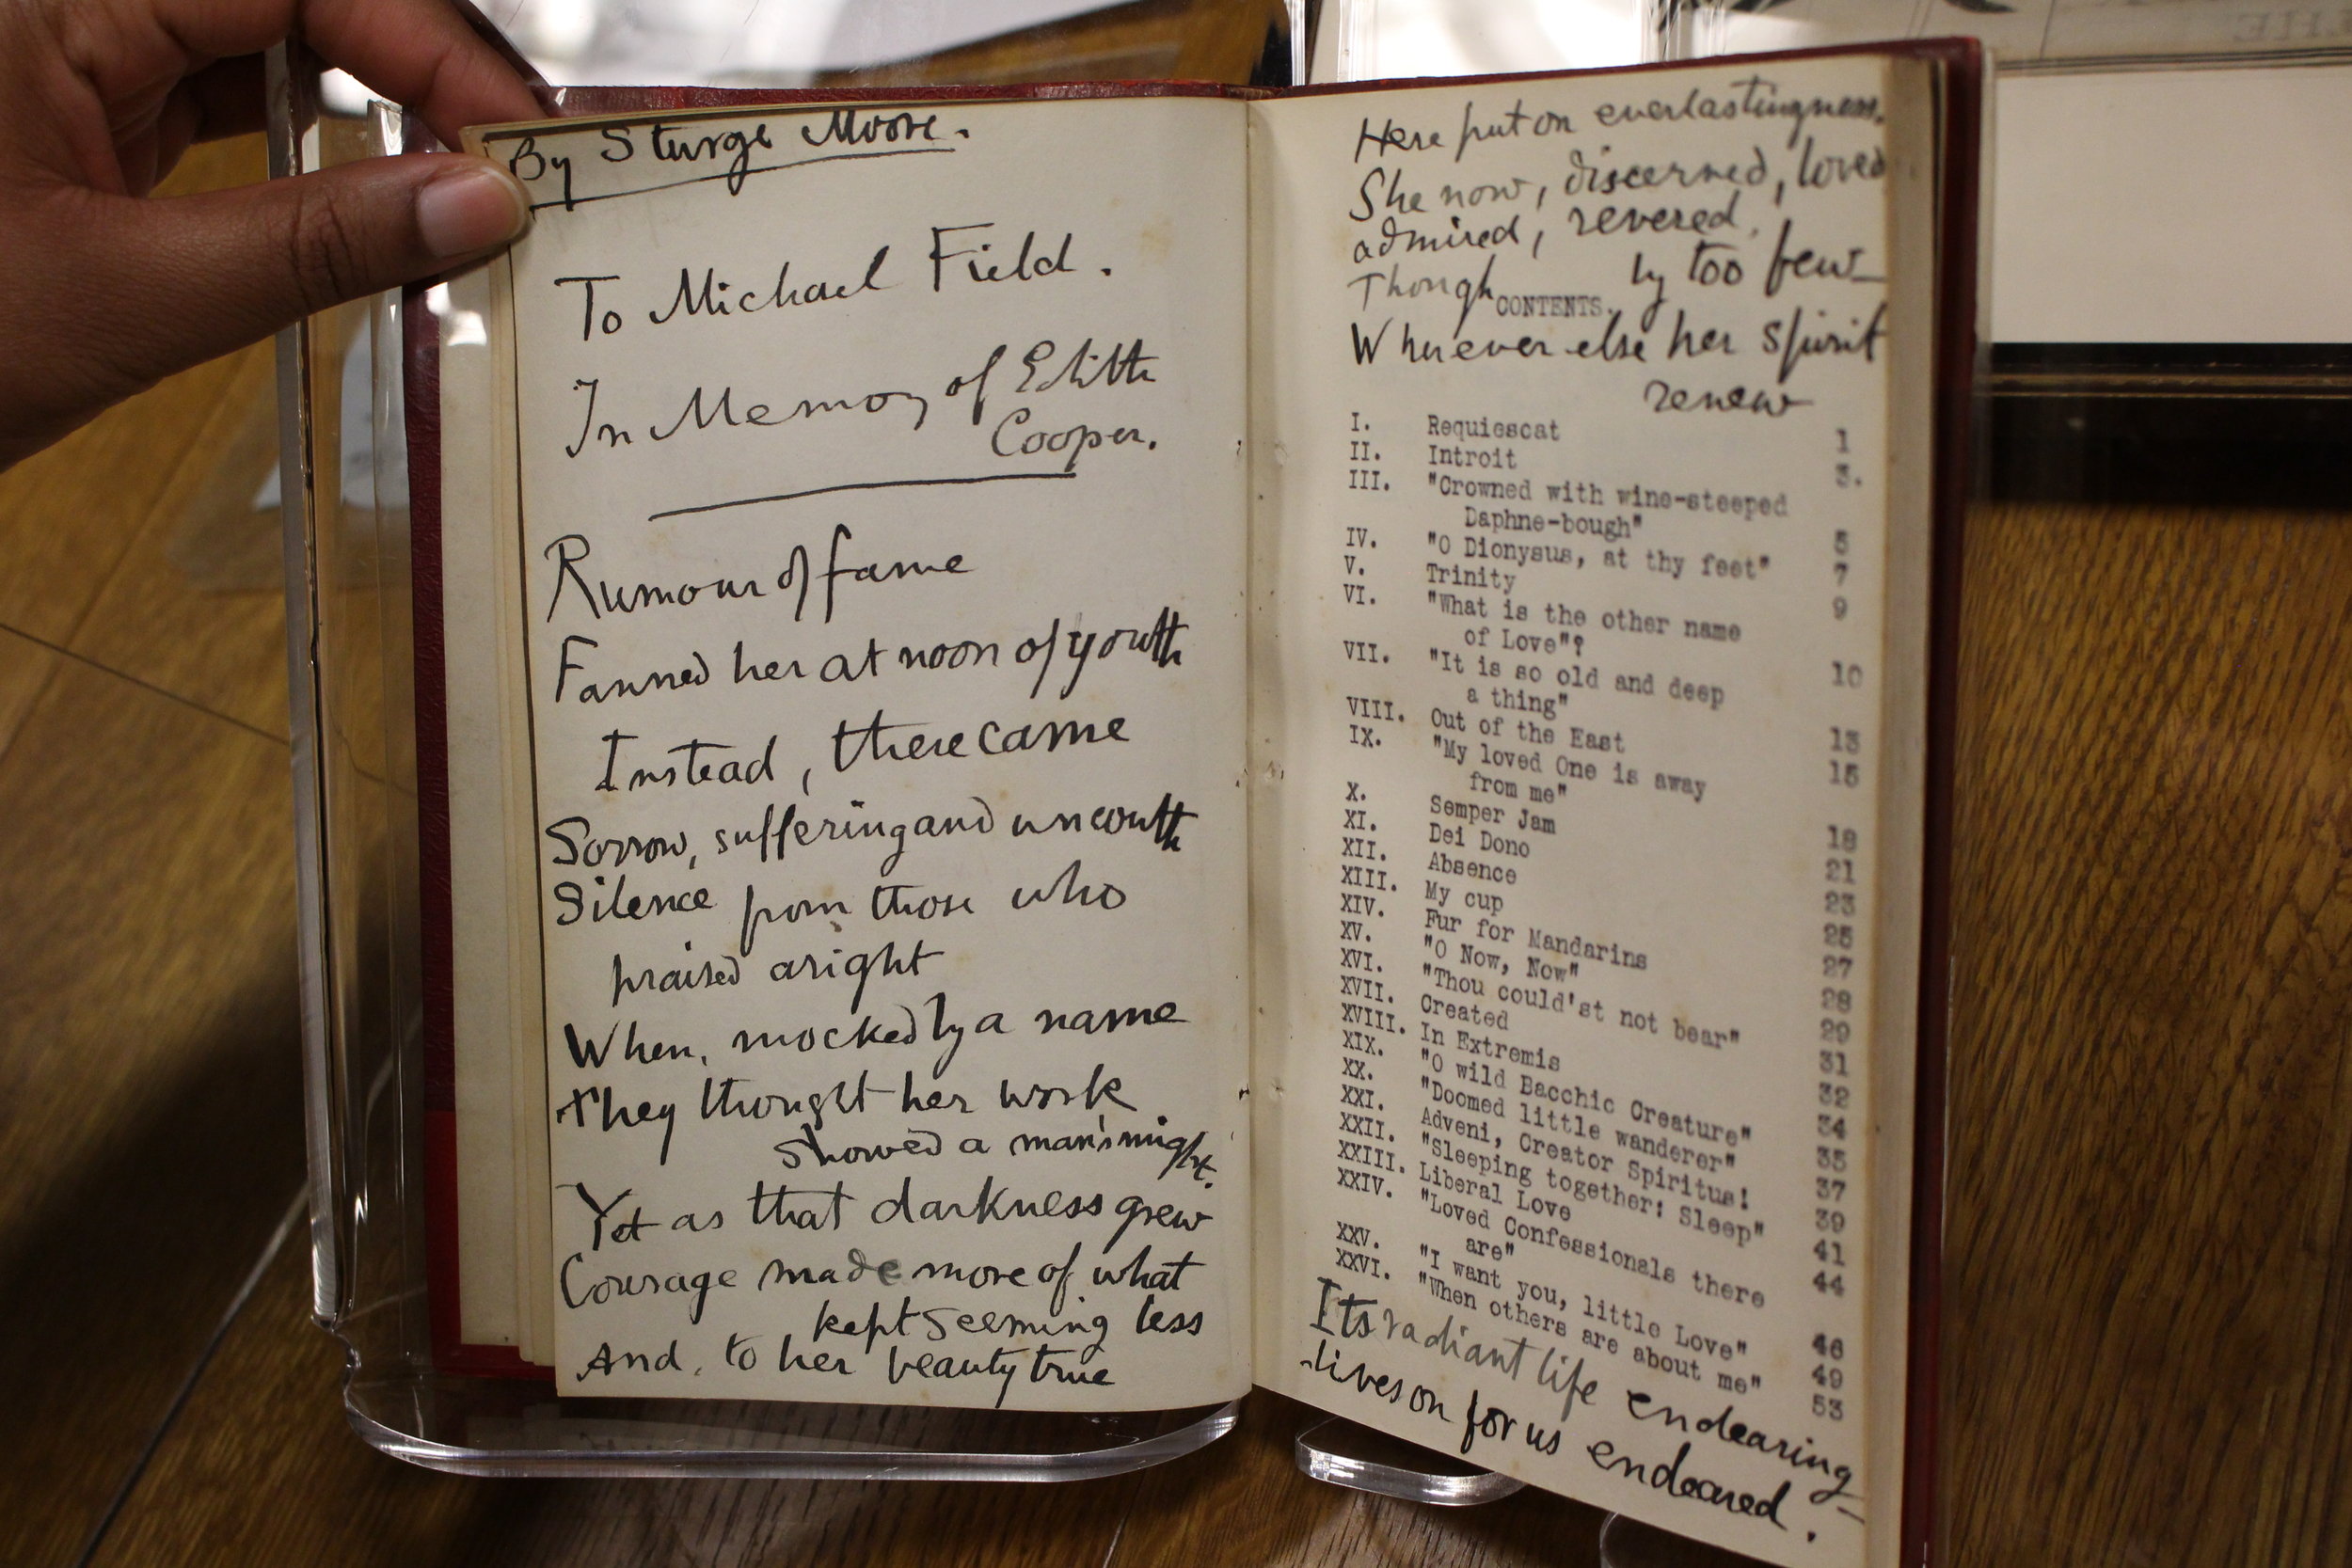 By Sturge Moore.
To Michael Field.
In Memory of Edith
Cooper.
Rumour of fame
Fanned her at noon of youth
Instead, there came
Sorrow, suffering and uncouth
Silence from those who
praised aright
When, mocked by a name
They thought her work
showed a man's might.
Yet as that darkness grew
Courage made more of what
kept seeming less
And, to her beauty true
Here put on everlastingness.
She now, discerned, loved
admired, revered,
Though by too few_
CONTENTS.
Wherever else her spirit
renew
I. Requiescat 1
II. Introit 3.
III. "Crowned with wine-steeped
Daphne-bough" 5
IV. "O Dionysus, at thy feet" 7
V. Trinity 9
VI. "What is the other name
of Love"? 10
VII. "It is so old and deep
a thing" 13
VIII. Out of the East 15
IX. "My loved One is away
from me" 18
X. Semper Jam 21
XI. Dei Dono 23
XII. Absence 25
XIII. My cup 27
XIV. Fur for Mandarins 28
XV. "O Now, Now" 29
XVI. "Thou could'st not bear" 31
XVII. Created 32
XVIII. In Extremis 34
XIX. "O wild Bacchic Creature" 35
XX. "Doomed little wanderer" 37
XXI. Adveni, Creator Spiritus! 39
XXII. "Sleeping together: Sleep" 41
XXIII. Liberal Love 44
XXIV. "Loved Confessionals there
are" 46
XXV. "I want you, little Love" 49
XXVI. "When others are about me" 53
Its radiant life endearing_
lives on for us endeared.